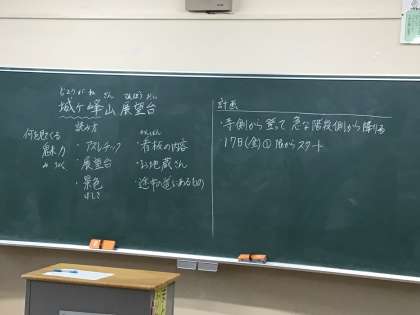 じょうがみね さん てんぼうだい
城ヶ峰山展望台
読み方
何を見てくる
魅力
みりょく
・アスレチック
・展望台
・景色
けしき
かんばん
・看板の内容
・お地蔵さん
・途中の道にあるもの
計画
・寺側から登って 急な階段側から降りる
・17日(金)① 1階からスタート